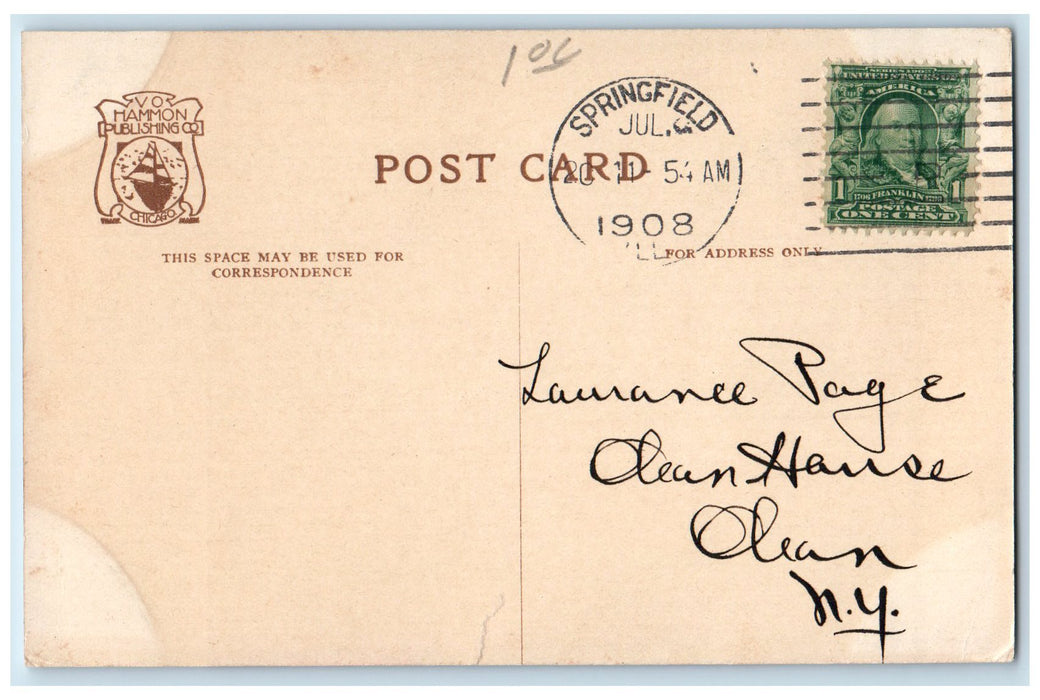 10c
V.O.
HAMMON
PUBLISHING CO
CHICAGO
TRADE MARK
POST CARD
SPRINGFIELD
JUL.
11 AM
1908
ILL
SERIES 1902
UNITED STATES OF
AMERICA
1 1
1706 FRANKLIN 1790
POSTAGE
ONE CENT
THIS SPACE MAY BE USED FOR
CORRESPONDENCE
FOR ADDRESS ONLY
Laurance Page
Olean House
Olean
N.Y.